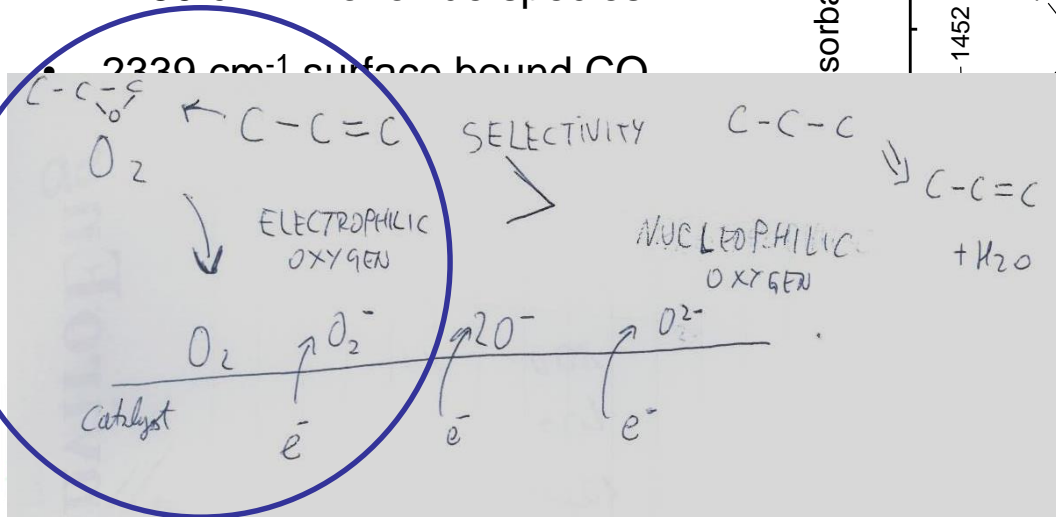 2339 cm-1 surface bound CO
sorba
1452
C-C-C
O
C-C=C
SELECTIVITY
>
C-C-C
C-C=C
+H2O
O2
ELECTROPHILIC
OXYGEN
NUCLEOPHILIC
OXYGEN
O2
O2-
2O-
O2-
Catalyst
e-
e-
e-